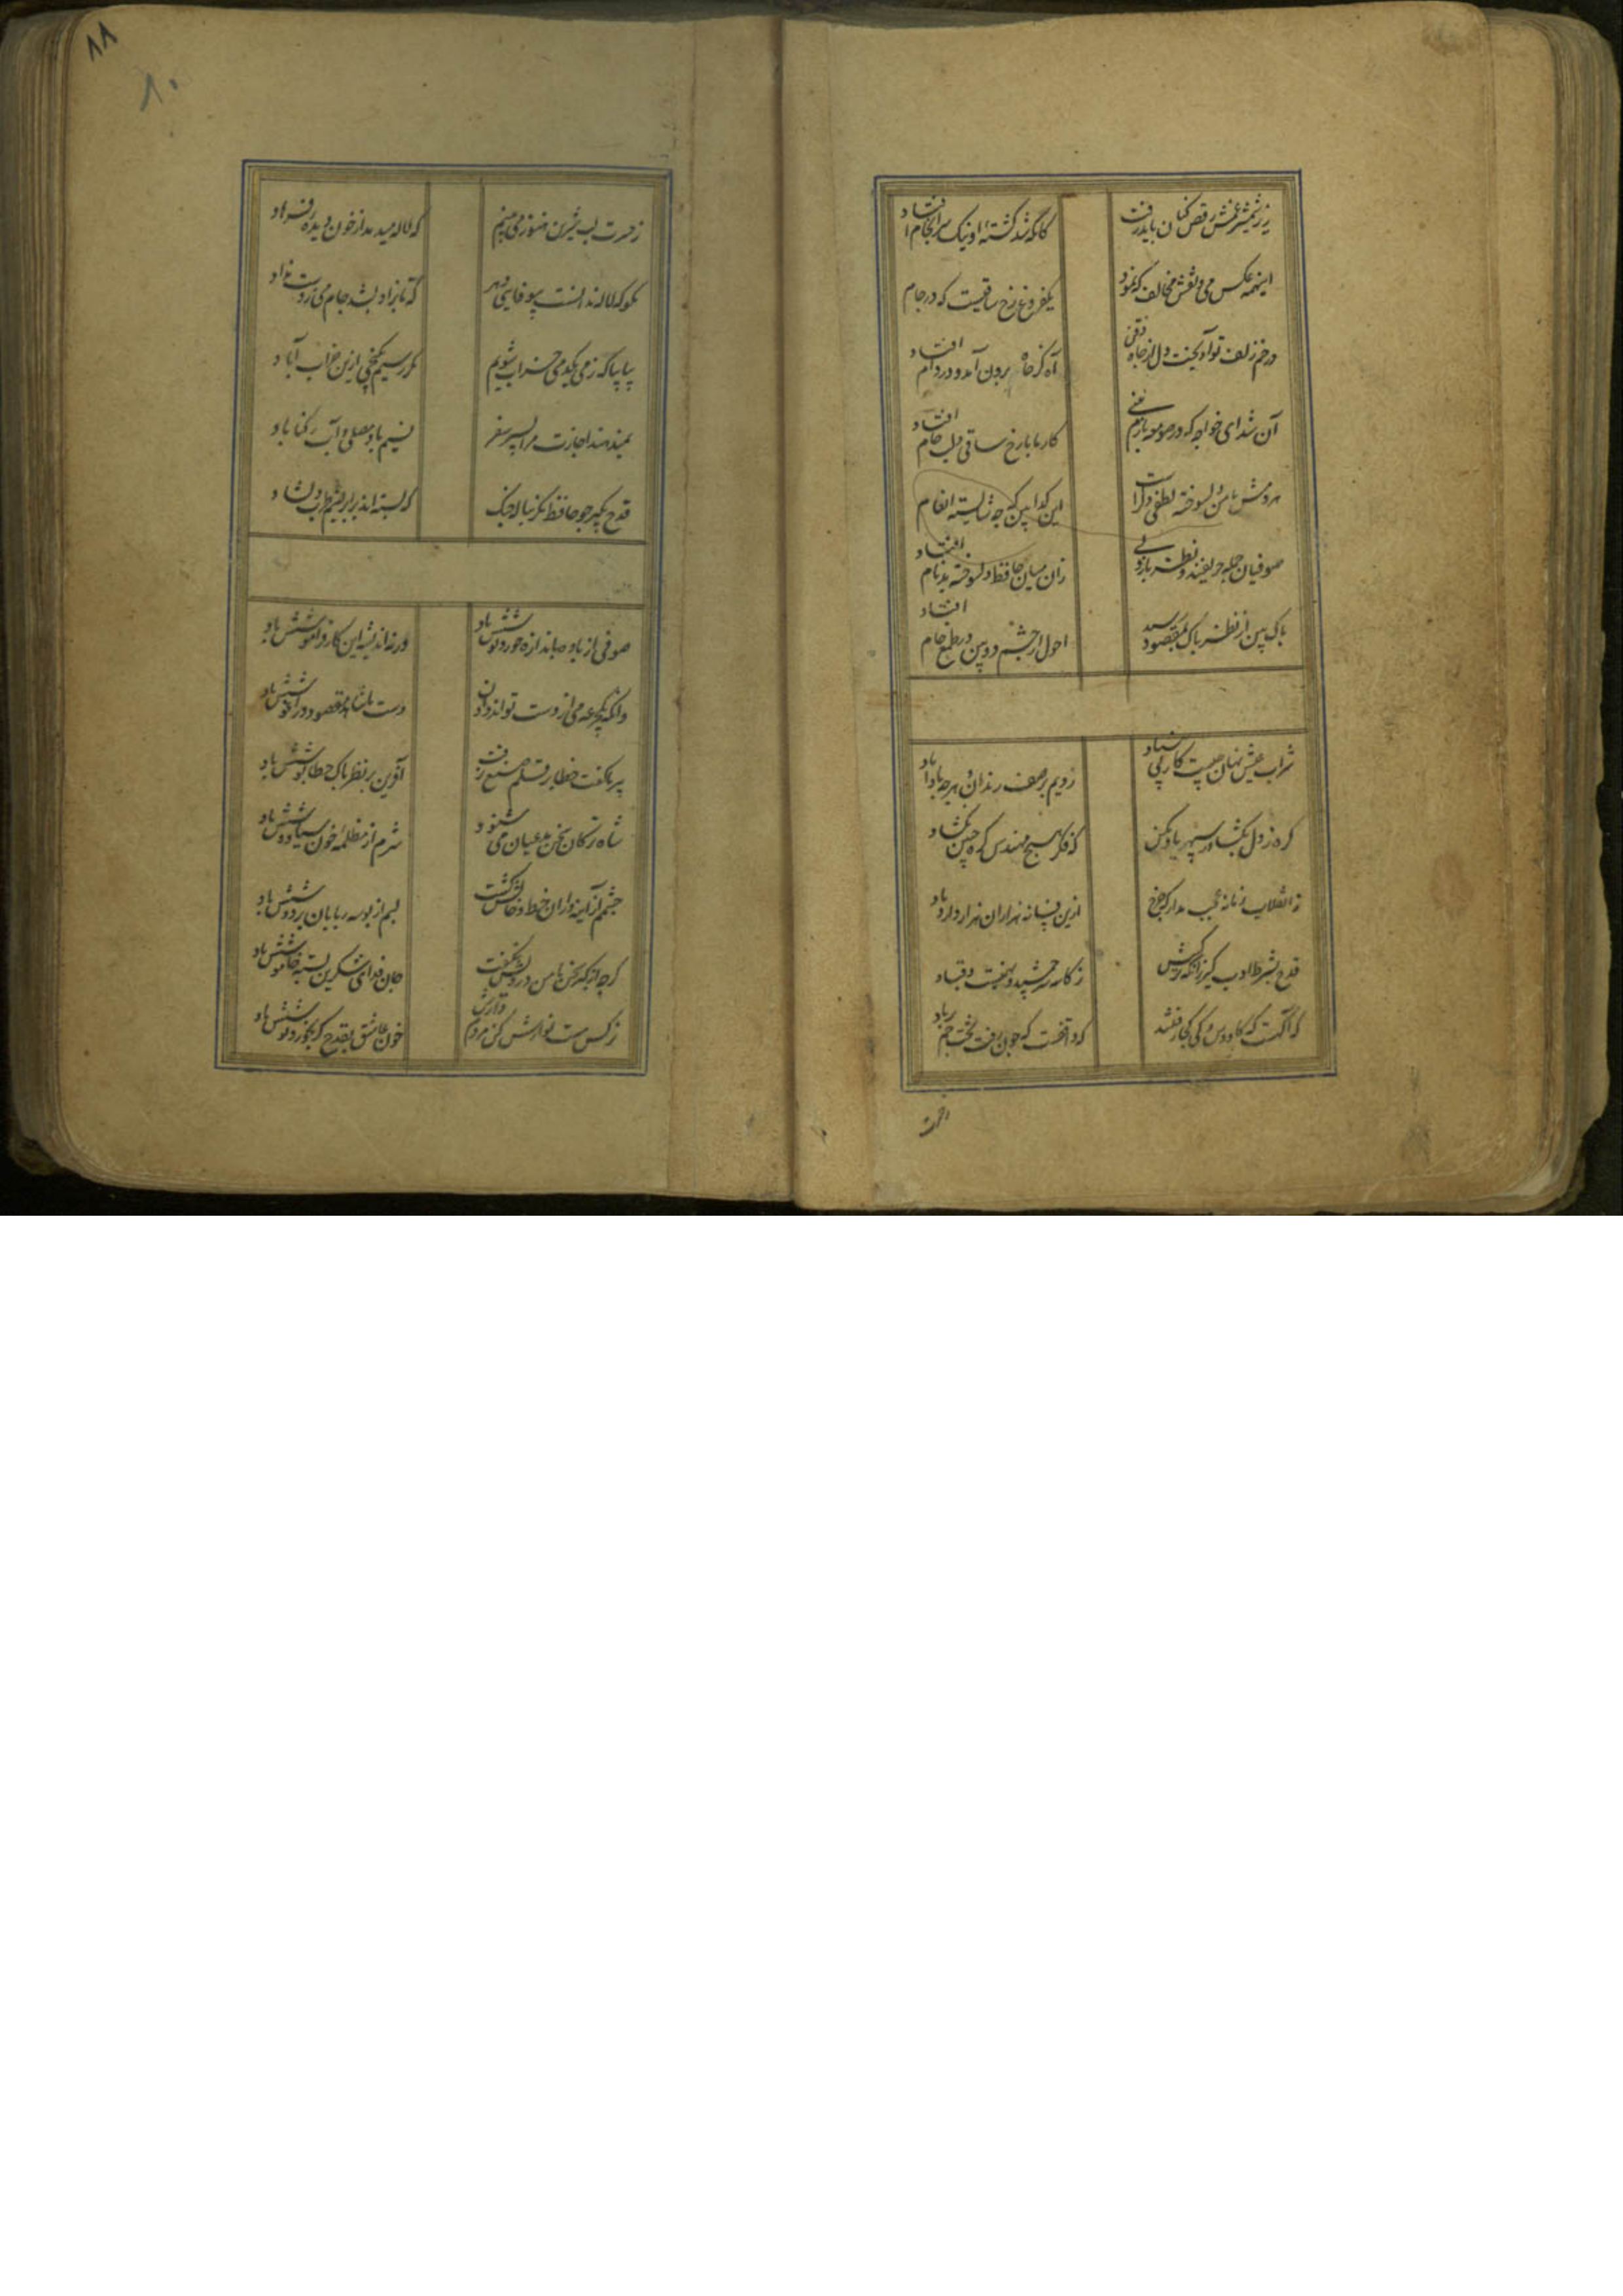 زیر شمشیر غمش رقص کنان باید رفت
کانکه شد کشته او نیک سرانجام افتاد
اینهمه عکس می و نقش مخالف که نمود
یکفروغ رخ ساقیست که در جام افتاد
در خم زلف تو آویخت دل از چاه ذقن
آه کز چاه برون آمد و در دام افتاد
آن شد ای خواجه که در صومعه بازم بینی
کار ما با رخ ساقی و لب جام افتاد
هر دمش با من دلسوخته لطفی دگراست
این گدا بین که چه شایسته انعام افتاد
صوفیان جمله حریفند و نظرباز ولی
زان میان حافظ دلسوخته بدنام افتاد
پاک بین از نظر پاک بمقصود رسید
احول از چشم دو بین در طمع خام
شراب و عیش نهان چیست کار بی بنیاد
زدیم بر صف رندان و هر چه بادا باد
گره ز دل بگشا وز سپهر یاد مکن
که فکر هیچ مهندس گره چنین نگشاد
ز انقلاب زمانه عجب مدار که چرخ
ازین فسانه هزاران هزار دارد یاد
قدح بشرط ادب گیر زانکه ترکیبش
ز کاسه سر جمشید و بهمنست و قباد
که آگهست که کاووس و کی کجا رفتند
که واقفست که چون رفت تخت جم بر باد
۸۸
۸۰
ز حسرت لب شیرین هنوز می بینم
که لاله میدمد از خون دیده فرهاد
مگو که لاله ندانست بیوفایی دهر
که تا بزاد و بشد جام می ز دست نداد
بیا بیا که ز می یکدمی خراب شویم
مگر رسیم بگنجی ازین خراب آباد
نمیدهند اجازت مرا بسیر سفر
نسیم باد مصلی و آب رکناباد
قدح مگیر چو حافظ مگر بناله چنگ
که بسته اند بر ابریشم طرب دلشاد
صوفی ار باده باندازه خورد نوشش باد
ورنه اندیشه این کار فراموشش باد
وانکه یکجرعه می از دست تواند دادن
دست با شاهد مقصود در آغوشش باد
پیر ما گفت خطا بر قلم صنع نرفت
آفرین بر نظر پاک خطا پوشش باد
شاه ترکان سخن مدعیان می شنود
شرم از مظلمه خون سیاووشش باد
چشمم از آینه داران خط و خالش گشت
لبم از بوسه ربایان بر دوشش باد
گرچه از کبر سخن با من درویش نگفت
جان فدای شکرین پسته خاموشش باد
نرگس مست نوازش کن مردم دارش
خون عاشق بقدح گر بخورد نوشش باد